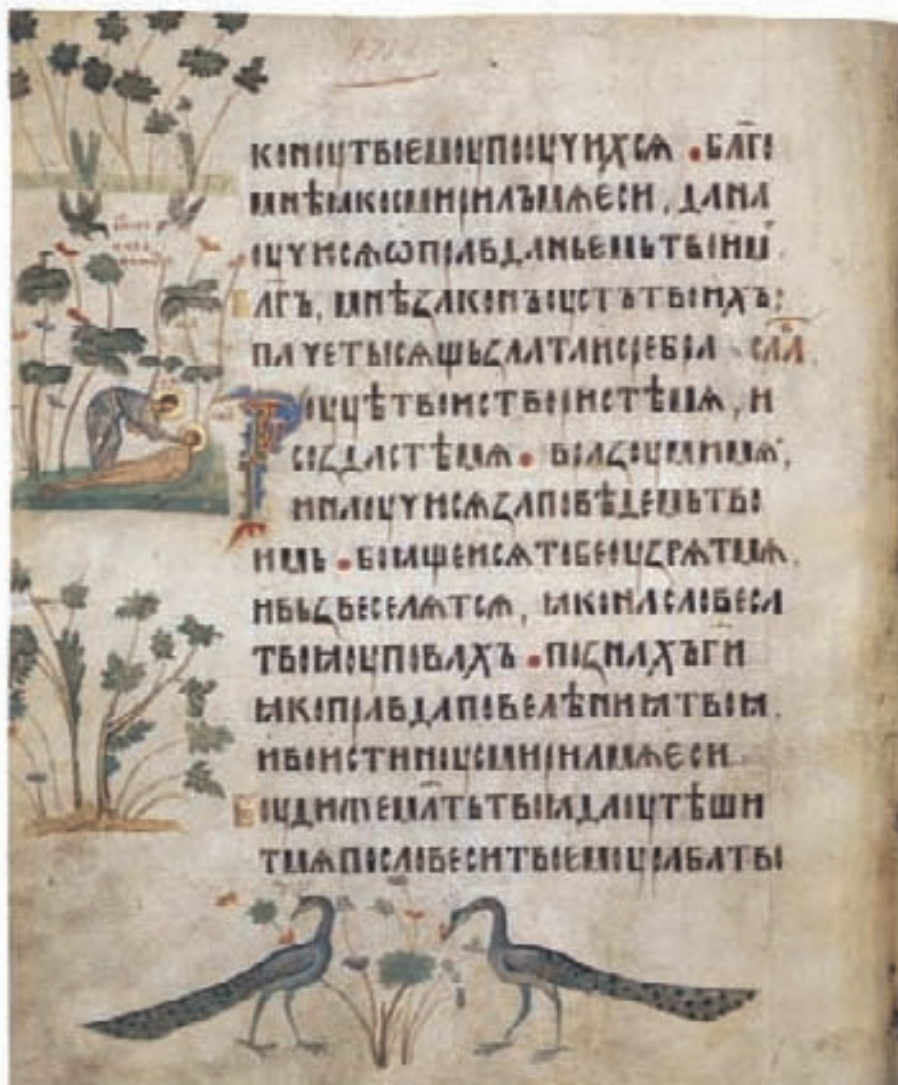 коноутвоемоупооучихсѧ •бл҃го
мнѣꙗкосмирилъмѧеси, дана
оучисѧѡправданьемьтвоим
Бл҃гъ, мнѣзаконъоустътвоихъ:
пачетысѧщьзлатаисребра сла
Роуцѣтвоиствористѣмѧ, и
создастѣмѧ • вразоумимѧ,
инаоучисѧзаповѣдемьтво
имь •боꙗщеисѧтобеоузрѧтмѧ,
ивьзвеселѧтсѧ, ꙗконасловеса
твоꙗоуповахъ •познахъг҃и
ꙗкоправдаповелѣниꙗтвоꙗ.
ивоистиноусмирилмѧеси
Боудижемл҃тьтвоꙗдаоутѣши
тмѧпословеситвоемоурабатво